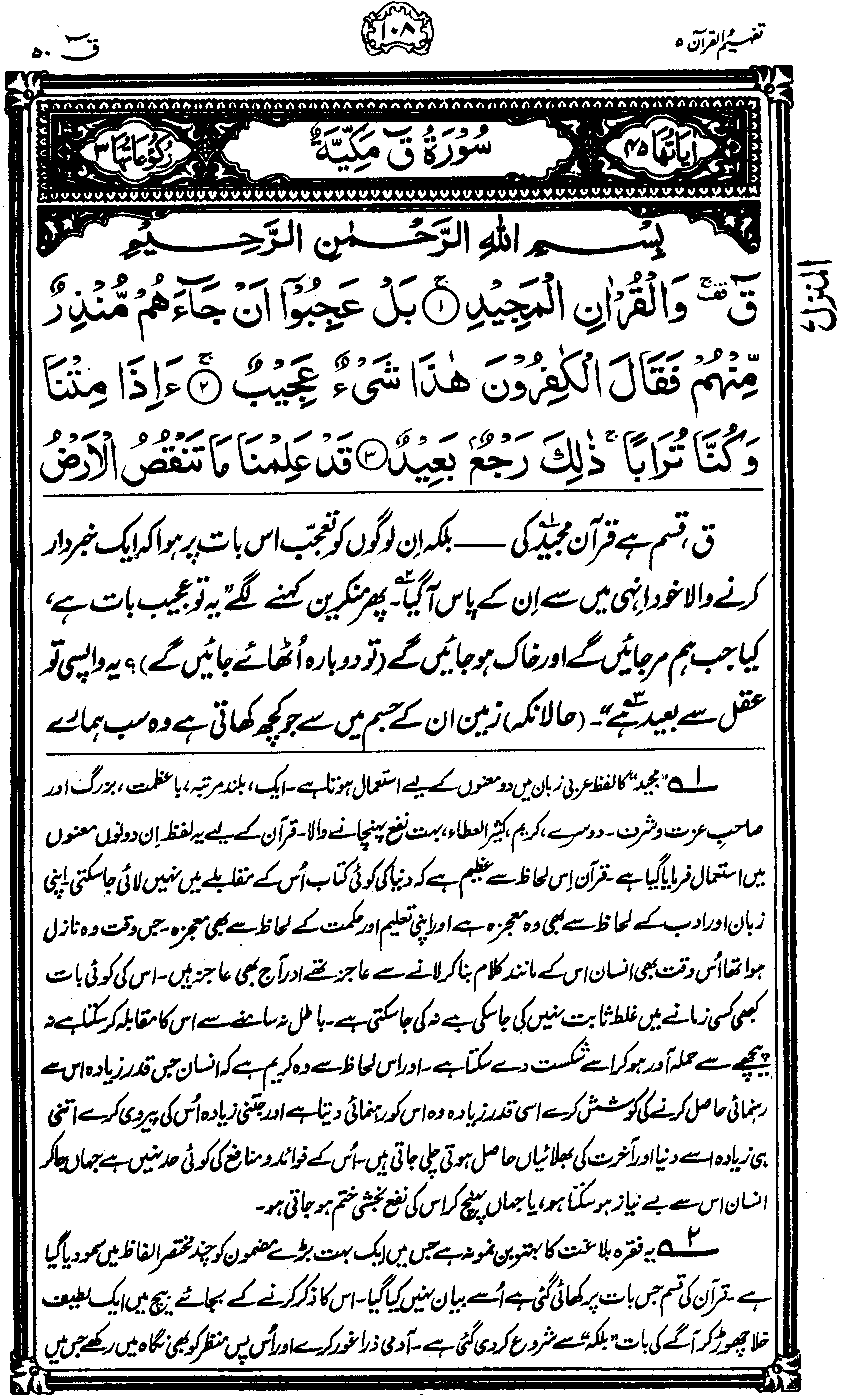 تفہیم القرآن ۵
۱۰۸
قٓ ۵۰
اٰیَاتُهَا ۴۵
سُوْرَةُ قٓ مَكِّيَّةٌ
رُكُوْعَاتُهَا ۳
بِسْمِ اللّٰهِ الرَّحْمٰنِ الرَّحِيْمِ
قٓ ۫ۚ وَالْقُرْاٰنِ الْمَجِيْدِ ۚ﴿۱﴾ بَلْ عَجِبُوْۤا اَنْ جَآءَهُمْ مُّنْذِرٌ
مِّنْهُمْ فَقَالَ الْكٰفِرُوْنَ هٰذَا شَیْءٌ عَجِيْبٌ ۚ﴿۲﴾ ءَاِذَا مِتْنَا
وَكُنَّا تُرَابًا ۚ ذٰلِكَ رَجْعٌۢ بَعِيْدٌ ﴿۳﴾ قَدْ عَلِمْنَا مَا تَنْقُصُ الْاَرْضُ
المنزل
قٓ، قسم ہے قرآن مجید کی ۱؎ ــــــ بلکہ اِن لوگوں کو تعجّب اس بات پر ہوا کہ ایک خبردار
کرنے والا خود اِنہی میں سے اِن کے پاس آگیا ۲؎۔ پھر منکرین کہنے لگے "یہ تو عجیب بات ہے،
کیا جب ہم مر جائیں گے اور خاک ہو جائیں گے (تو دوبارہ اُٹھائے جائیں گے)؟ یہ واپسی تو
عقل سے بعید ہے ۳؎"۔ (حالانکہ) زمین ان کے جسم میں سے جو کچھ کھاتی ہے وہ سب ہمارے
۱؎ "مجید" کا لفظ عربی زبان میں دو معنوں کے لیے استعمال ہوتا ہے۔ ایک، بلند مرتبہ، با عظمت، بزرگ اور
صاحبِ عزت و شرف۔ دوسرے، کریم، کثیر العطاء، بہت نفع پہنچانے والا۔ قرآن کے لیے یہ لفظ اِن دونوں معنوں
میں استعمال فرمایا گیا ہے۔ قرآن اِس لحاظ سے عظیم ہے کہ دنیا کی کوئی کتاب اُس کے مقابلے میں نہیں لائی جا سکتی۔ اپنی
زبان اور ادب کے لحاظ سے بھی وہ معجزہ ہے اور اپنی تعلیم اور حکمت کے لحاظ سے بھی معجزہ۔ جس وقت وہ نازل
ہوا تھا اُس وقت بھی انسان اس کے مانند کلام بنا کر لانے سے عاجز تھے اور آج بھی عاجز ہیں۔ اس کی کوئی بات
کبھی کسی زمانے میں غلط ثابت نہیں کی جا سکی ہے نہ کی جا سکتی ہے۔ باطل نہ سامنے سے اس کا مقابلہ کر سکتا ہے نہ
پیچھے سے حملہ آور ہو کر اسے شکست دے سکتا ہے۔ اور اس لحاظ سے وہ کریم ہے کہ انسان جس قدر زیادہ اس سے
رہنمائی حاصل کرنے کی کوشش کرے اسی قدر زیادہ وہ اس کو رہنمائی دیتا ہے اور جتنی زیادہ اُس کی پیروی کرے اتنی
ہی زیادہ اسے دنیا اور آخرت کی بھلائیاں حاصل ہوتی چلی جاتی ہیں۔ اُس کے فوائد و منافع کی کوئی حد نہیں ہے جہاں جا کر
انسان اس سے بے نیاز ہو سکتا ہو، یا جہاں پہنچ کر اس کی نفع بخشی ختم ہو جاتی ہو۔
۲؎ یہ فقرہ بلاغت کا بہترین نمونہ ہے جس میں ایک بہت بڑے مضمون کو چند مختصر الفاظ میں سمو دیا گیا
ہے۔ قرآن کی قسم جس بات پر کھائی گئی ہے اُسے بیان نہیں کیا گیا۔ اس کا ذکر کرنے کے بجائے بیچ میں ایک لطیف
خلا چھوڑ کر آگے کی بات "بلکہ" سے شروع کر دی گئی ہے۔ آدمی ذرا غور کرے اور اُس پس منظر کو بھی نگاہ میں رکھے جس میں